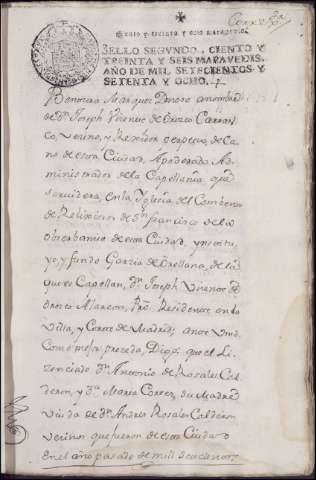 SELLO SEGVNDO, CIENTO Y
TREINTA Y SEIS MARAVEDIS,
AÑO DE MIL, SETECIENTOS Y
SETENTA Y OCHO.
Marquez Donoso a nombre
de Dn. Joseph Vicente de
co, vecino, y Rexidor perpetuo, de ca
no de esta Ciudad, Apoderado Ad
ministrador de la Capellania que
se sirviera, en la Yglesia del Combento
de Religiosos de Sn. Francisco de la
obserbancia de esta Ciudad, ynstitu
yo, y fundo Garzia de Orellana, de la
que es Capellan, Dn. Joseph Vicente de
Alarcon, Pro. Residente en la
Villa, y Corte de Madrid; ante Vmd.
Como mejor proceda, Digo; que el Li
zenciado Dn. Antonio de Rosales Cal
deron, y Da. Maria Cortes, su Madre
viuda de Dn. Andres Rosales Calderon
vecinos que fueron de esta Ciudad
en el año pasado de mil